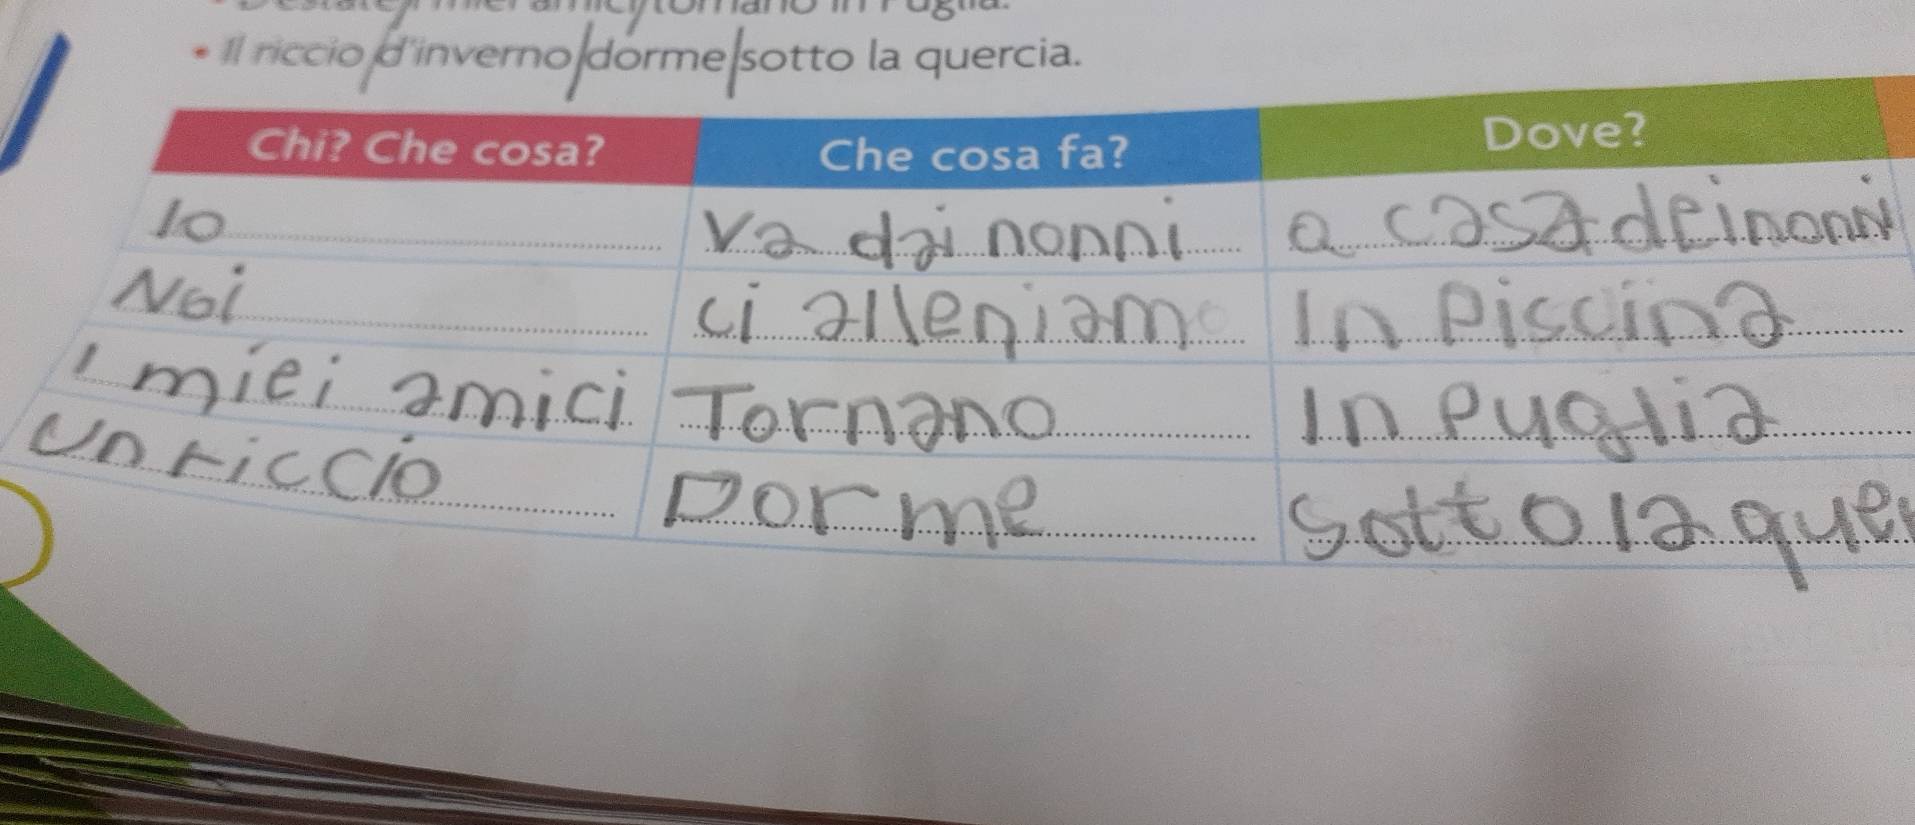 • Il riccio d'inverno dorme sotto la quercia.
Chi? Che cosa? Che cosa fa? Dove?
Io Va dai nonni a casa dei nonni
Noi ci alleniamo In Piscina
I miei amici Tornano In Puglia
Un riccio Dorme Sotto la quer